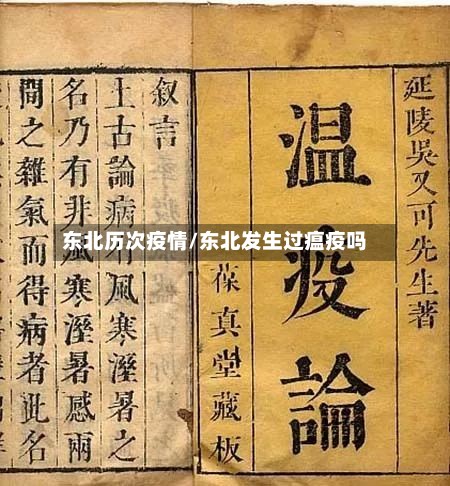 东北历次疫情/东北发生过瘟疫吗
延陵吳又可先生著
温疫論
葆真堂藏板
叙言
上古論病有風寒溼暑之
名乃有非風寒溼暑感兩
間之雜氣而得病者此名